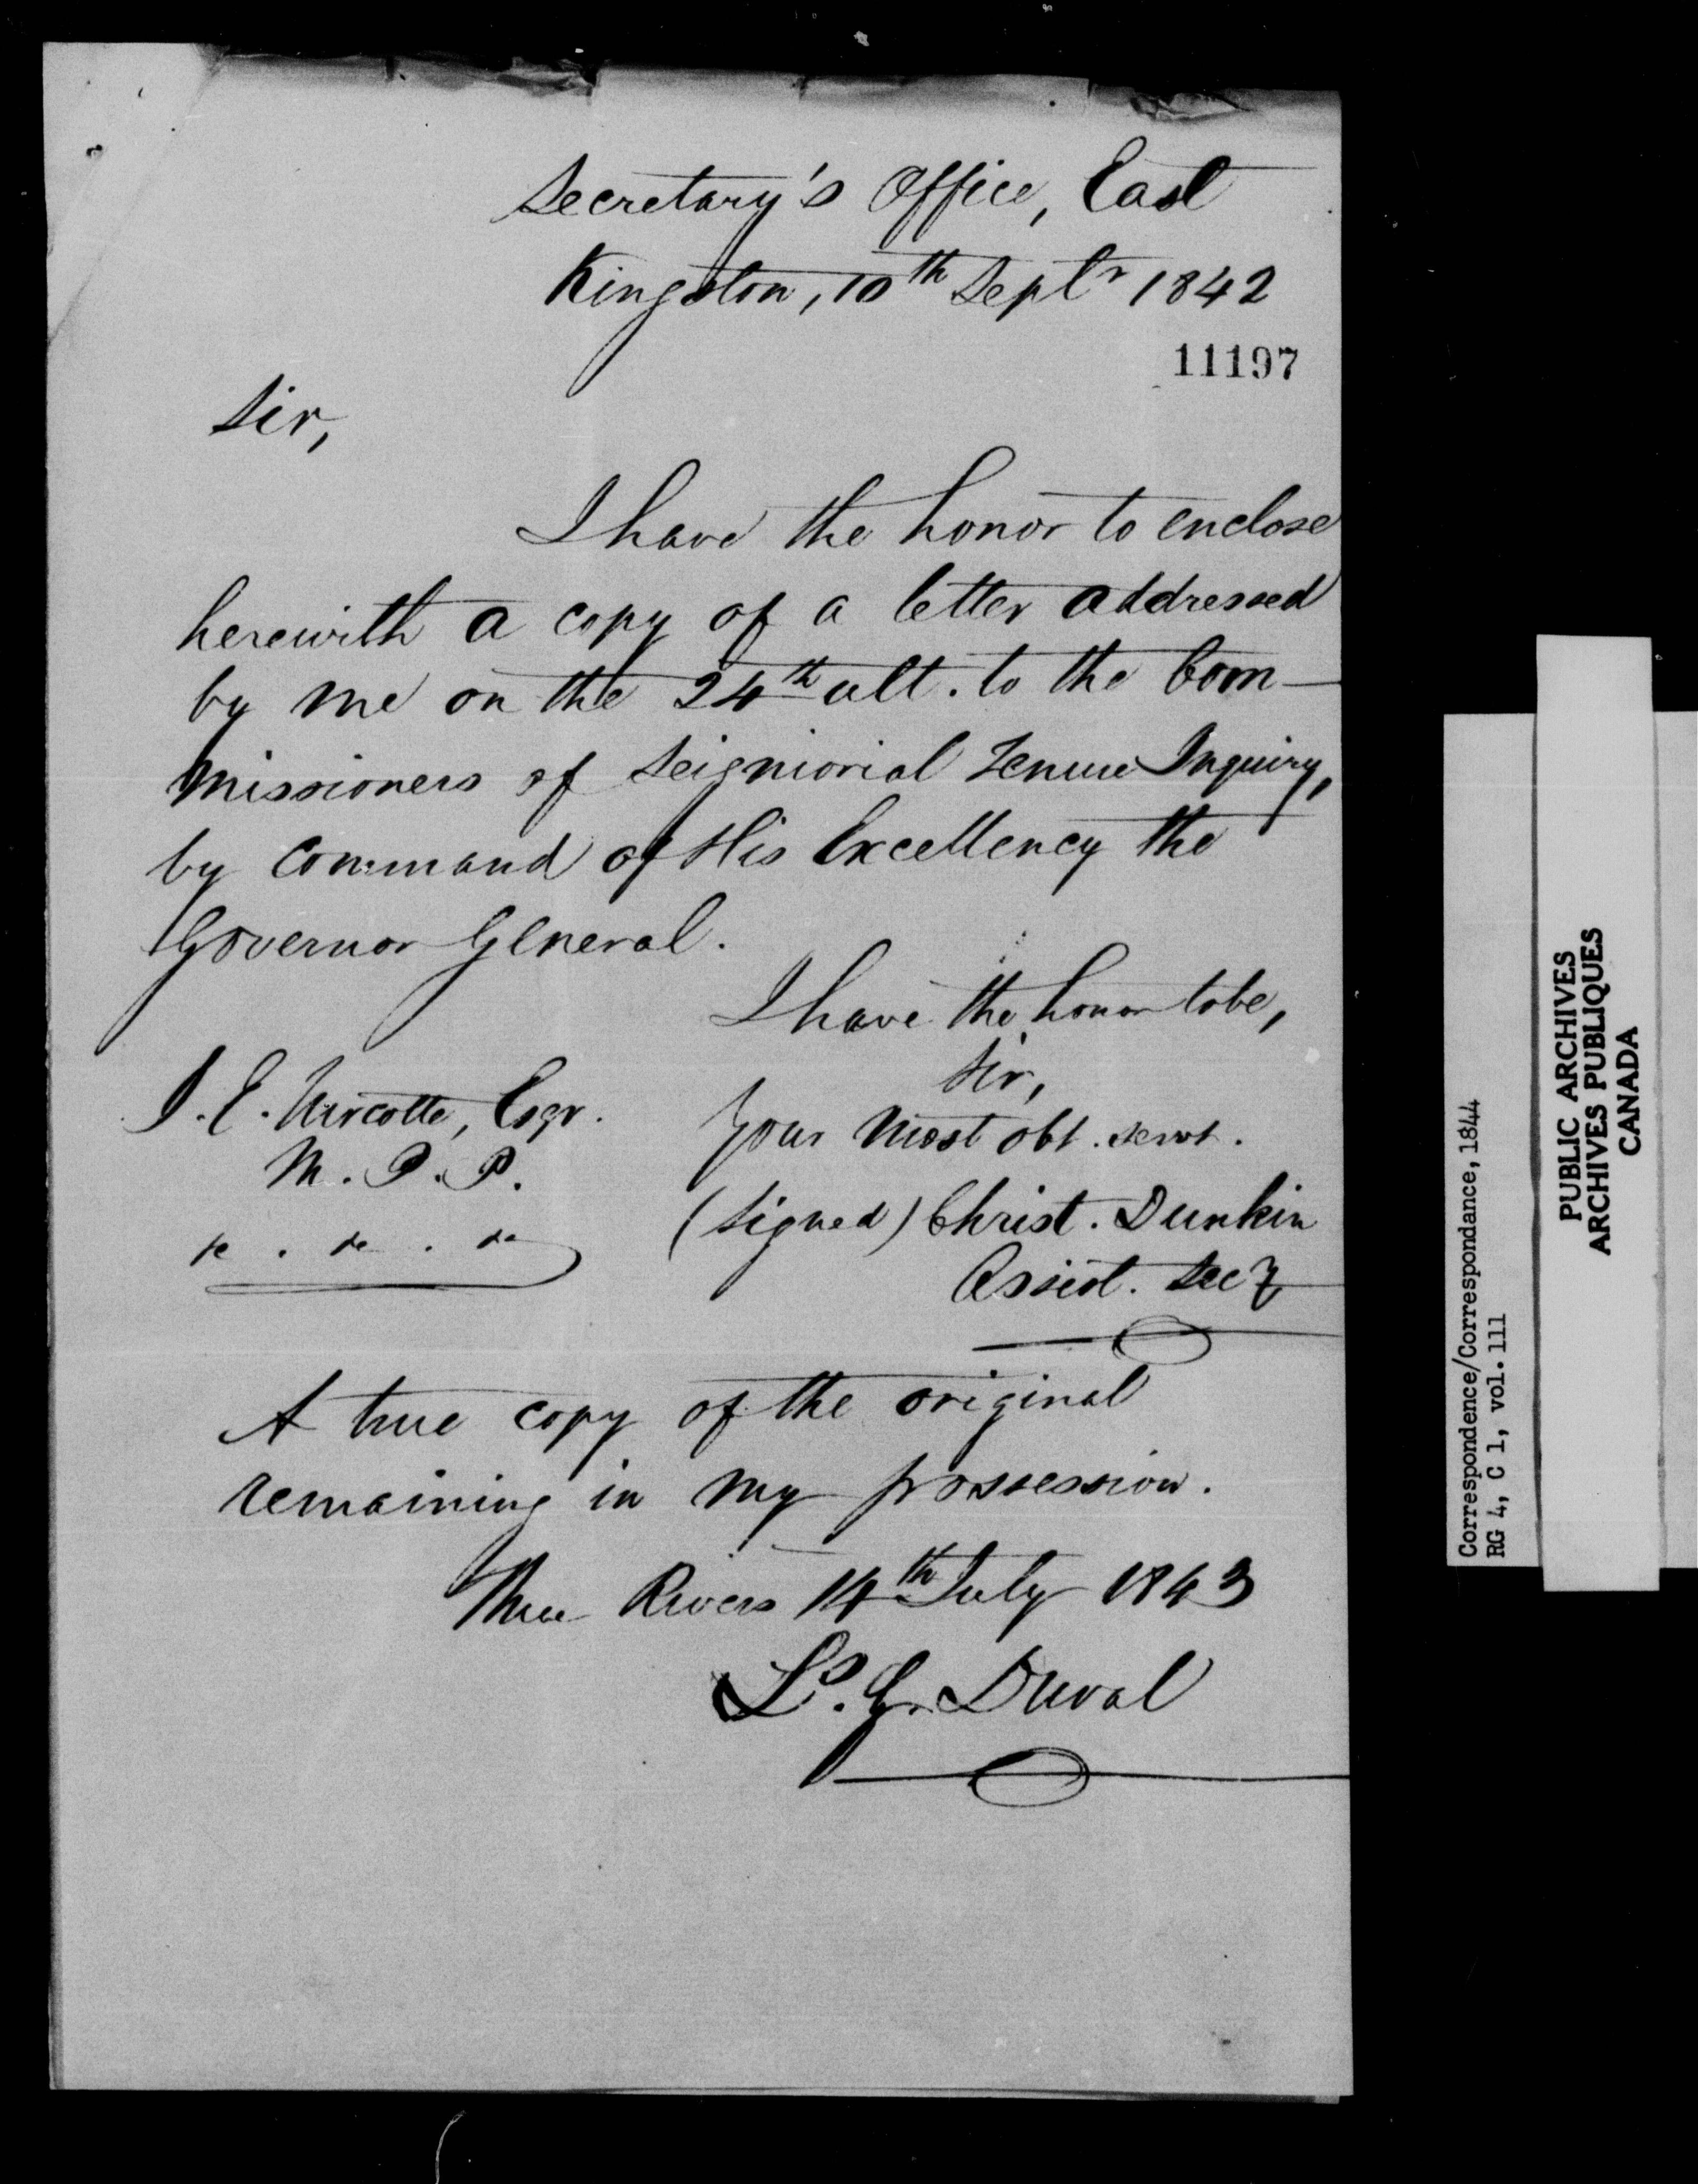 Secretary's Office, East
Kingston, 10th Septr 1842
11197
Sir,
I have the honor to enclose
herewith a copy of a letter addressed
by me on the 24th ult. to the Com-
missioners of Seigniorial Tenure Inquiry,
by command of His Excellency the
Governor General.
I have the honor to be,
Sir,
Your most obt. servt.
(Signed) Christ. Dunkin
Assist. Secy
J. E. Turcotte, Esqr.
M. P. P.
A true copy of the original
remaining in my possession.
Three Rivers 14th July 1843
Ls. G. Duval
Correspondence/Correspondance, 1844
RG 4, C 1, vol. 111
PUBLIC ARCHIVES
ARCHIVES PUBLIQUES
CANADA